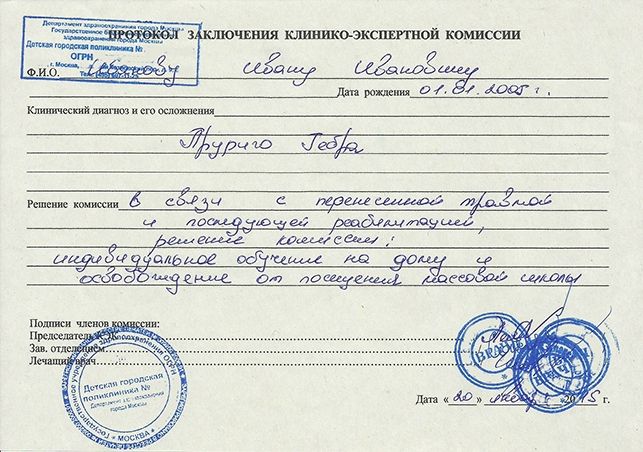 Департамент здравоохранения города Москвы
Государственное бюджетное
здравоохранения города Москвы
Детская городская поликлиника №
ОГРН
г. Москва,
ПРОТОКОЛ ЗАКЛЮЧЕНИЯ КЛИНИКО-ЭКСПЕРТНОЙ КОМИССИИ
Ф.И.О. Иванову Ивану Ивановичу
Дата рождения 01.01.2005 г.
Клинический диагноз и его осложнения
Пруриго Гебра
Решение комиссии в связи с перенесенной травмой
и последующей реабилитацией,
решение комиссии:
индивидуальное обучение на дому и
освобождение от посещения массовой школы
Подписи членов комиссии:
Председатель КЭК
Зав. отделением
Лечащий врач
Детская городская
поликлиника №
Департамент здравоохранения
города Москвы
* МОСКВА *
Дата « 20 » 2015г.